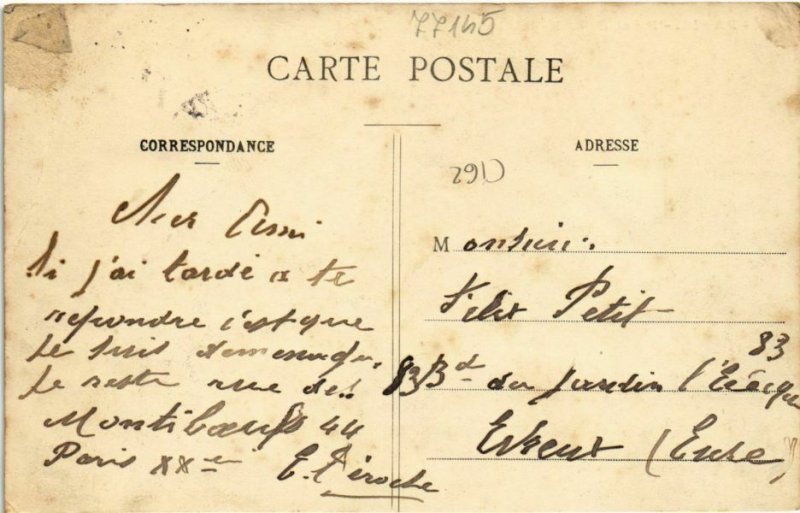 77145
CARTE POSTALE
CORRESPONDANCE
ADRESSE
Si j'ai tardé a te
repondre c'est que
je suis demenagé,
Je reste rue des
Montiboeufs 44
Paris XXem
E. Piroche
Monsieur
Felix Petit
83
83 Bd du Jardin l'Evêque
Evreux (Eure)